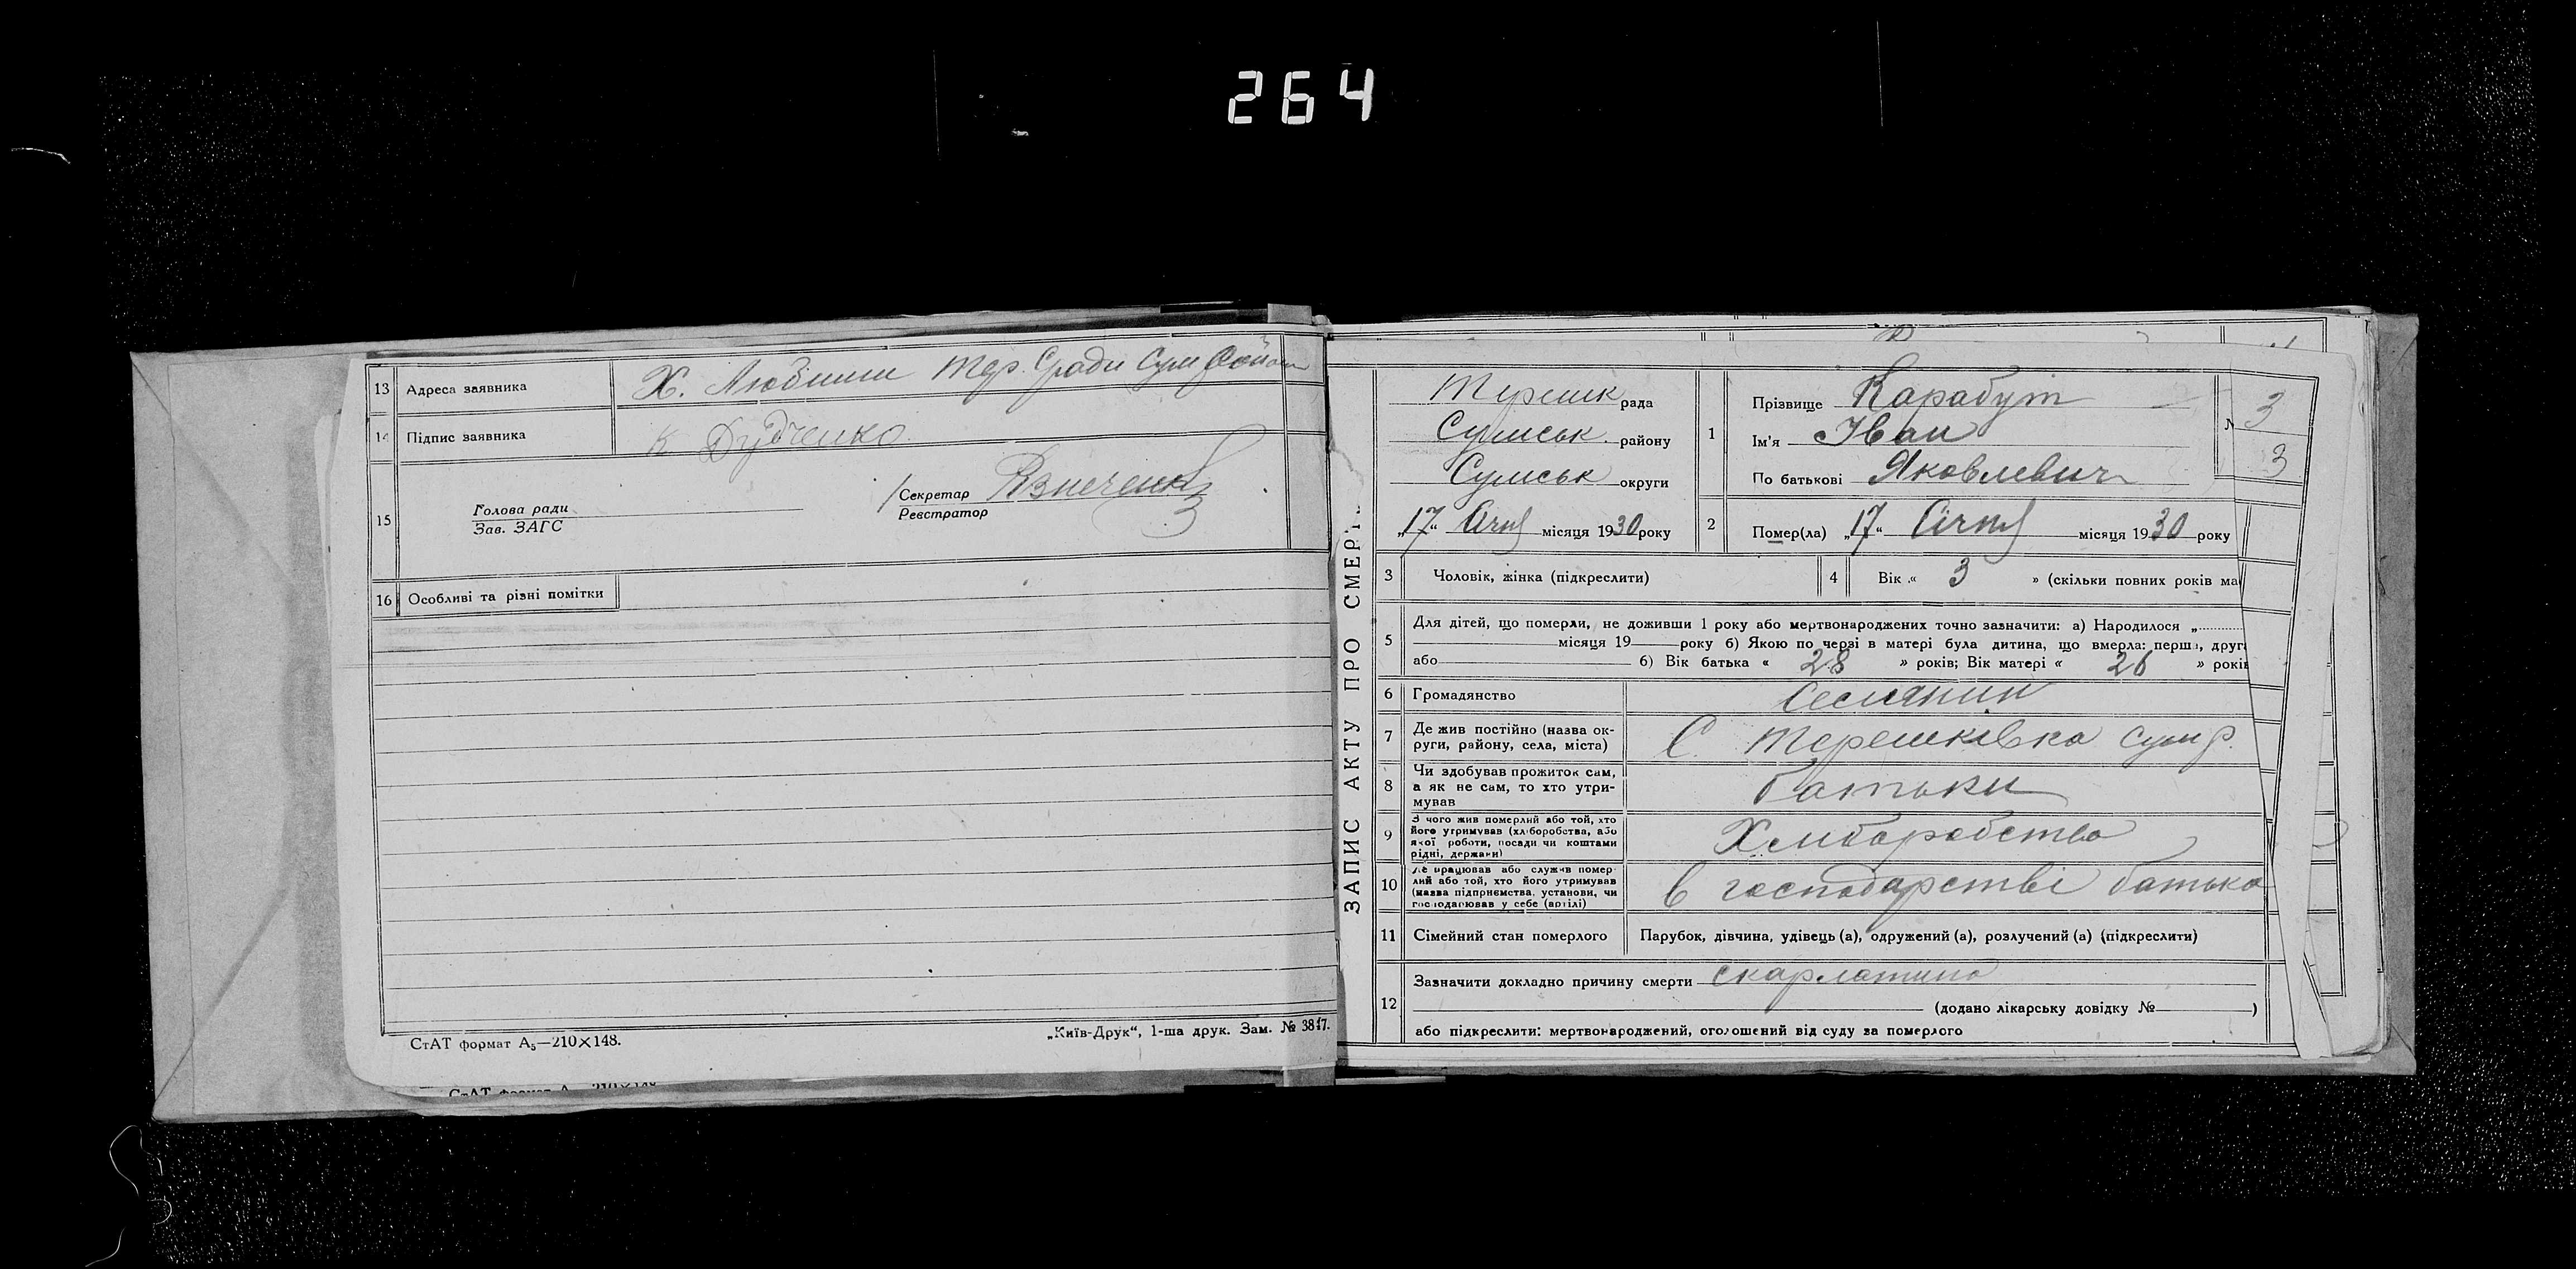 264
13 Адреса заявника Х. Любіши Тер. С/ради Сум Району
14 Підпис заявника К Дудченко
15 Голова ради
Зав. ЗАГС
Секретар
Реєстратор
3
16 Особливі та різні помітки
СтАТ формат А5—210×148.
„Київ-Друк“, 1-ша друк. Зам. № 3847.
ЗАПИС АКТУ ПРО СМЕРТЬ
Терешк рада
Сумськ району
Сумськ округи
„17“ Січня місяця 1930 року
1 Прізвище Карабут
Ім'я Іван
По батькові Яковлевич
3
3
2 Помер(ла) „17“ Січня місяця 1930 року
3 Чоловік, жінка (підкреслити)
4 Вік „ 3 » (скільки повних років ма
5 Для дітей, що померли, не доживши 1 року або мертвонароджених точно зазначити: а) Народилося „
місяця 19 року б) Якою по черзі в матері була дитина, що вмерла: перша, друга
або б) Вік батька « 28 » років; Вік матері « 26 » років
6 Громадянство Селянин
7 Де жив постійно (назва округи, району, села, міста) С. Терешковка Сум р.
8 Чи здобував прожиток сам, а як не сам, то хто утримував батьки
9 З чого жив померлий або той, хто його утримував (хліборобства, або якої роботи, посади чи коштами рідні, держави) Хлибаробство
10 Де працював або служив померлий або той, хто його утримував (назва підприємства, установи, чи господарював у себе (артілі) в господарстві батька
11 Сімейний стан померлого Парубок, дівчина, удівець (а), одружений (а), розлучений (а) (підкреслити)
12 Зазначити докладно причину смерти скарлатина
(додано лікарську довідку № )
або підкреслити: мертвонароджений, оголошений від суду за померлого